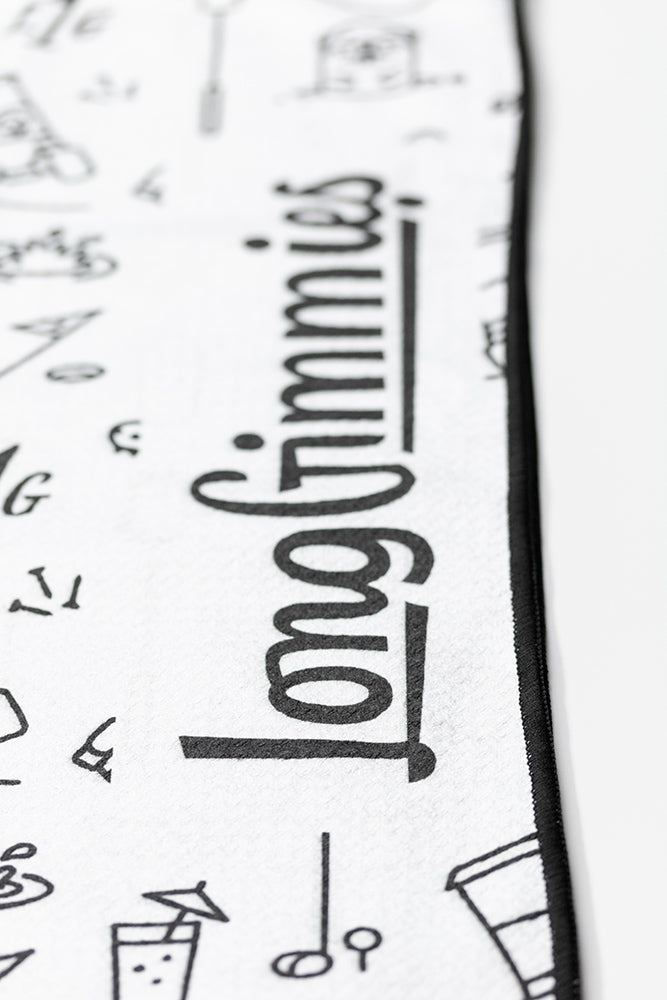 LongGimmies
G